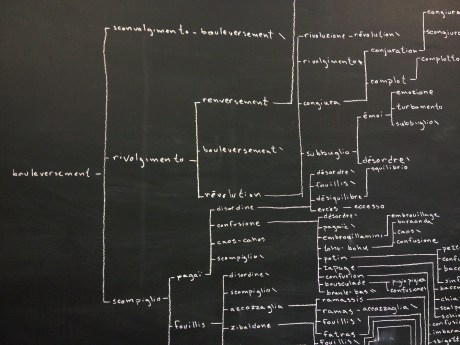 bouleversement
sconvolgimento - bouleversement \
rivolgimento
scompiglio
renversement
bouleversement \
révolution
pagaï
fouillis
rivoluzione - révolution \
rivolgimento \
congiura
subbuglio
conjuration
complot
congiura
complotto
émoi
désordre \
emozione
turbamento
subbuglio \
disordine
confusione
caos - cahos
scompiglio \
disordine \
scompiglio \
accozzaglia
zibaldone
désordre \
fouillis \
désiquilibre
equilibrio
excès - eccesso
désordre \
pagaïe \
embrouillamini
tohu-bohu
potin
tapage
confusion
bouscolade
embrouillage
baraonda
caos \
confusione
pigia-pigia
confusione \
ramassis
ramas - accozzaglia \
fouillis \
fatras
fouillis \